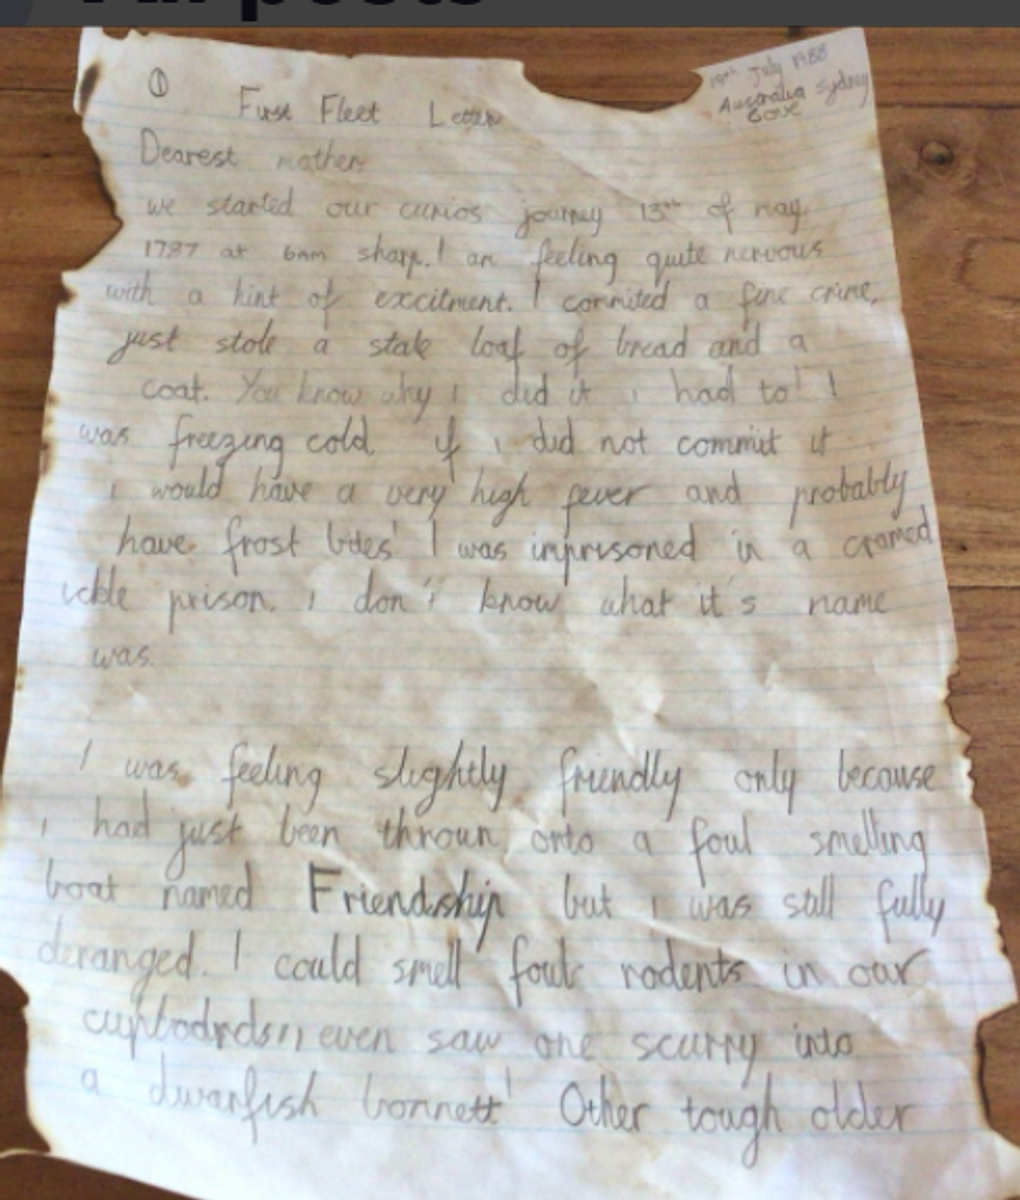 All posts
①
19th July 1988
Australia Sydney
Cove
First Fleet Letter
Dearest mother
we started our curios journey 13th of may
1787 at 6am sharp. I am feeling quite nervous
with a hint of excitment. I commited a fine crime,
just stole a stale loaf of bread and a
coat. You know why i did it i had to! I
was freezing cold. if i did not commit it
i would have a very high fever and probably
have frost bites! I was imprisoned in a cramed
ickle prison. i don't know what it's name
was.
I was feeling slightly friendly only because
i had just been thrown onto a foul smelling
boat named Friendship but i was still fully
deranged. I could smell foul rodents in our
cupbodrds, i even saw one scurry into
a dwarfish bonnett! Other tough older